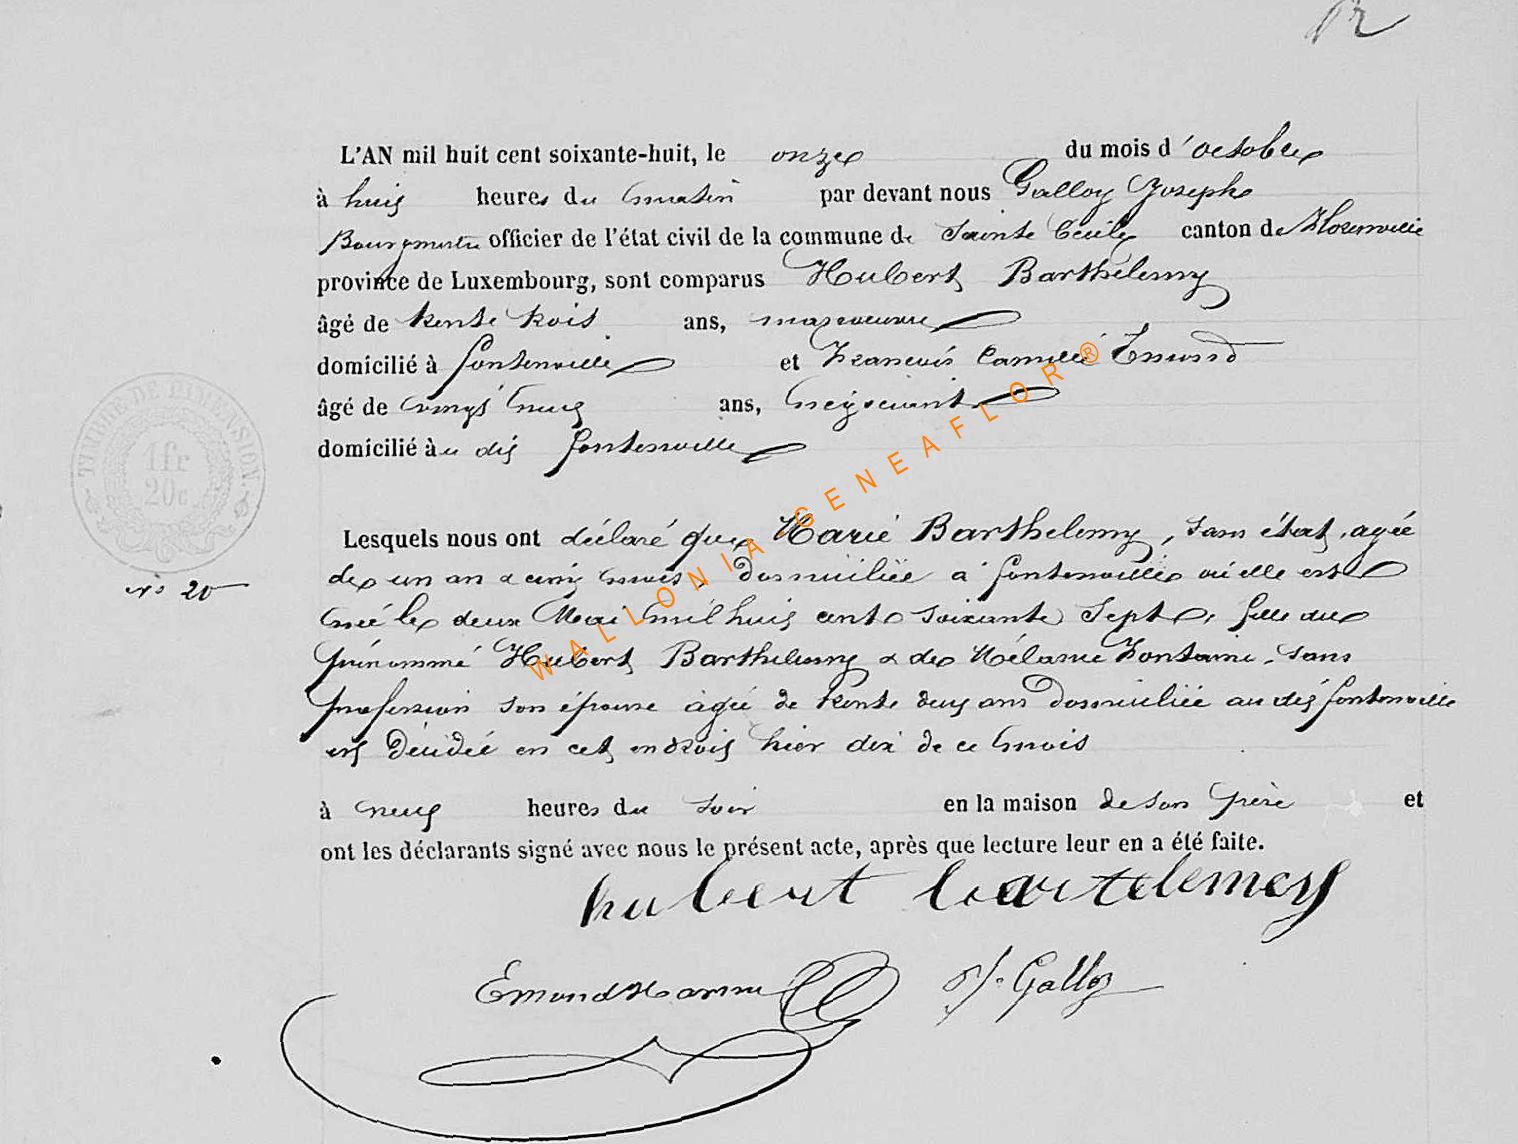 12
L'AN mil huit cent soixante-huit, le onze du mois d'octobre
à huit heures du matin par devant nous Galloy Joseph
Bourgmestre officier de l'état civil de la commune de Sainte Cécile canton de Florenville
province de Luxembourg, sont comparus Hubert Barthélemy
âgé de trente trois ans, manoeuvre
domicilié à fontenoille et Francois Camille Emond
âgé de vingt neuf ans, négociant
domicilié àu dit fontenoille
TIMBRE DE DIMENSION.
1fr
20c
Lesquels nous ont déclaré que Marie Barthelemy, sans état, agée
de un an & cinq mois, domiciliée à fontenoille où elle est
N° 20
née le deux Mai mil huit cent soixante sept, fille du
prénommé Hubert Barthelemy & de Mélanie Fontaine, sans
profession son épouse âgée de trente deux ans domiciliée au dit fontenoille
est décédée en cet endroit hier dix de ce mois
à neuf heures du soir en la maison de son père et
ont les déclarants signé avec nous le présent acte, après que lecture leur en a été faite.
hubert bartelemey
Emond J. Galloy
WALLONIA GENEAFLOR®